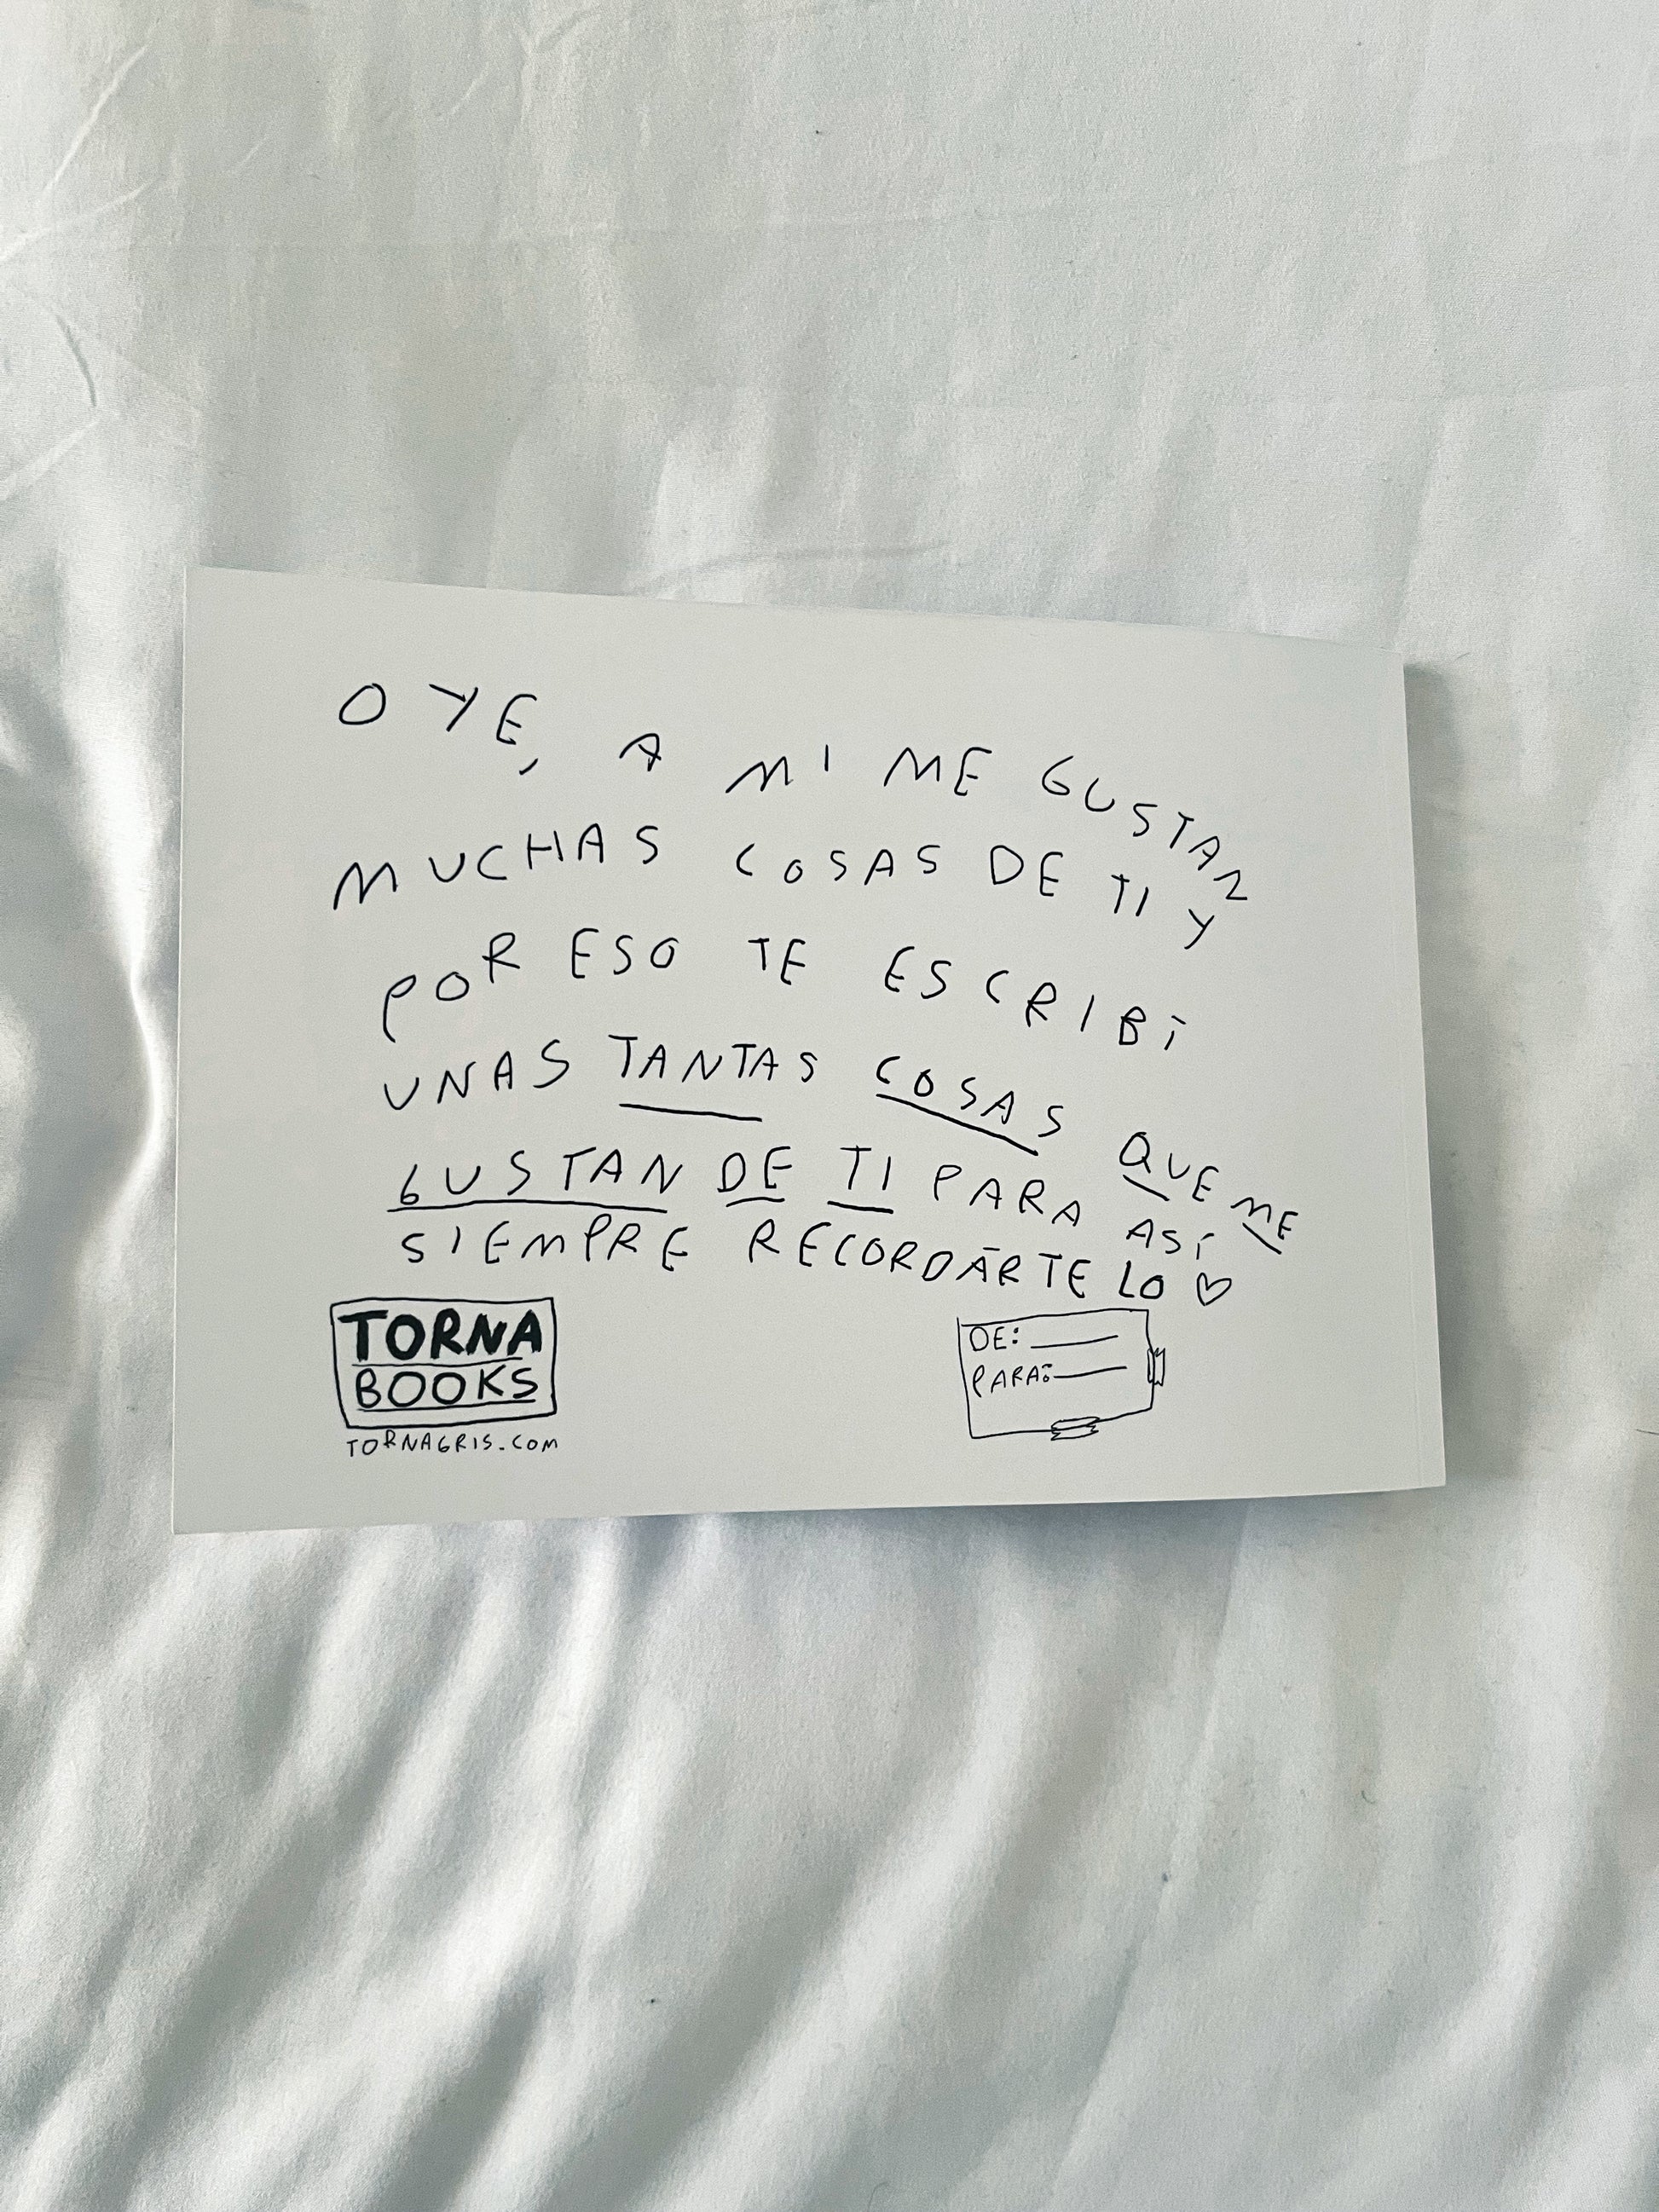 OYE, A MI ME GUSTAN
MUCHAS COSAS DE TI Y
POR ESO TE ESCRIBÍ
UNAS TANTAS COSAS QUE ME
GUSTAN DE TI PARA ASÍ
SIEMPRE RECORDÁRTELO ♡
TORNA
BOOKS
TORNAGRIS.COM
DE:
PARA: